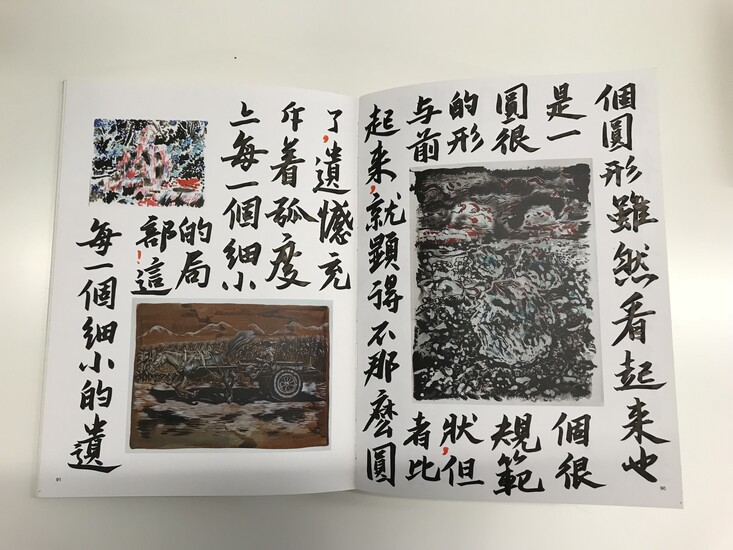 個圓形雖然看起來也
是一個很
圓很規範
的形狀,但
与前者比
起來,就顯得不那麼圓
90
了,遺憾充
斥着弧度
上每一個細小
的局
部!這
每一個細小的遺
91